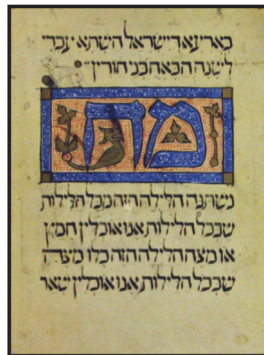 בארעא דישראל השתא עבדי
לשנה הבאה בני חורין
מה
נשתנה הלילה הזה מכל הלילות
שבכל הלילות אנו אוכלין חמץ
או מצה הלילה הזה כלו מצה
שבכל הלילות אנו אוכלין שאר